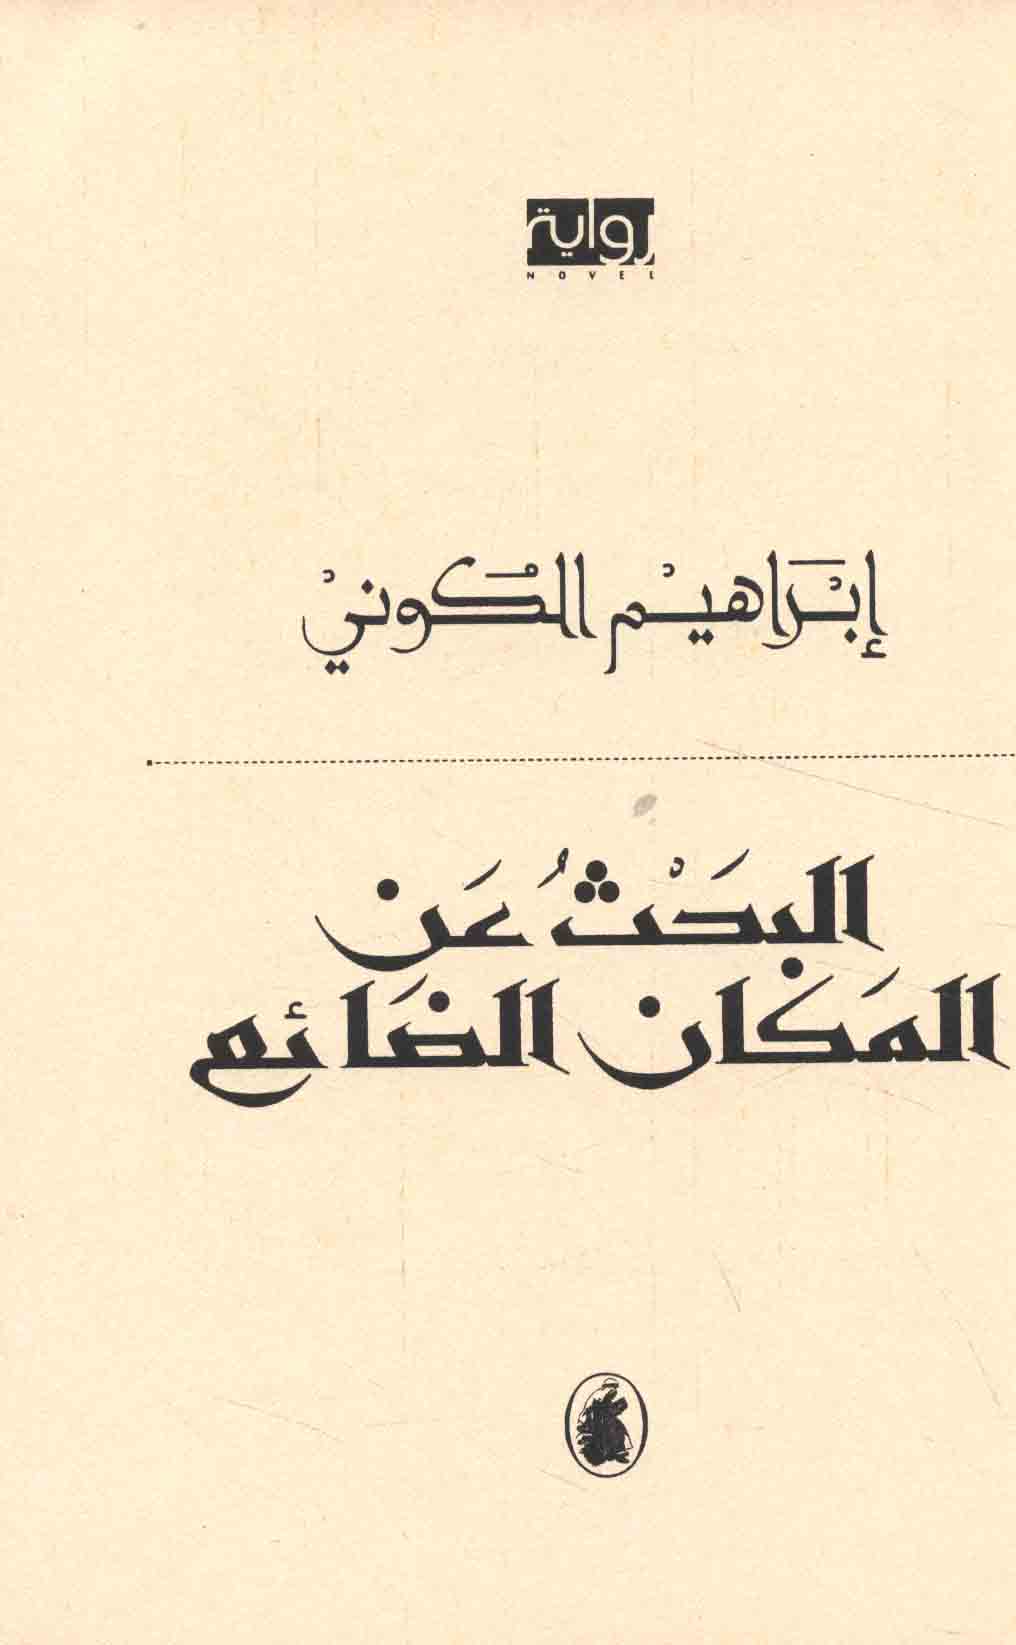 رواية
NOVEL
إبْرَاهيْم الكُونيْ
البحَدْثُ عَن
المَكَان الضَائع